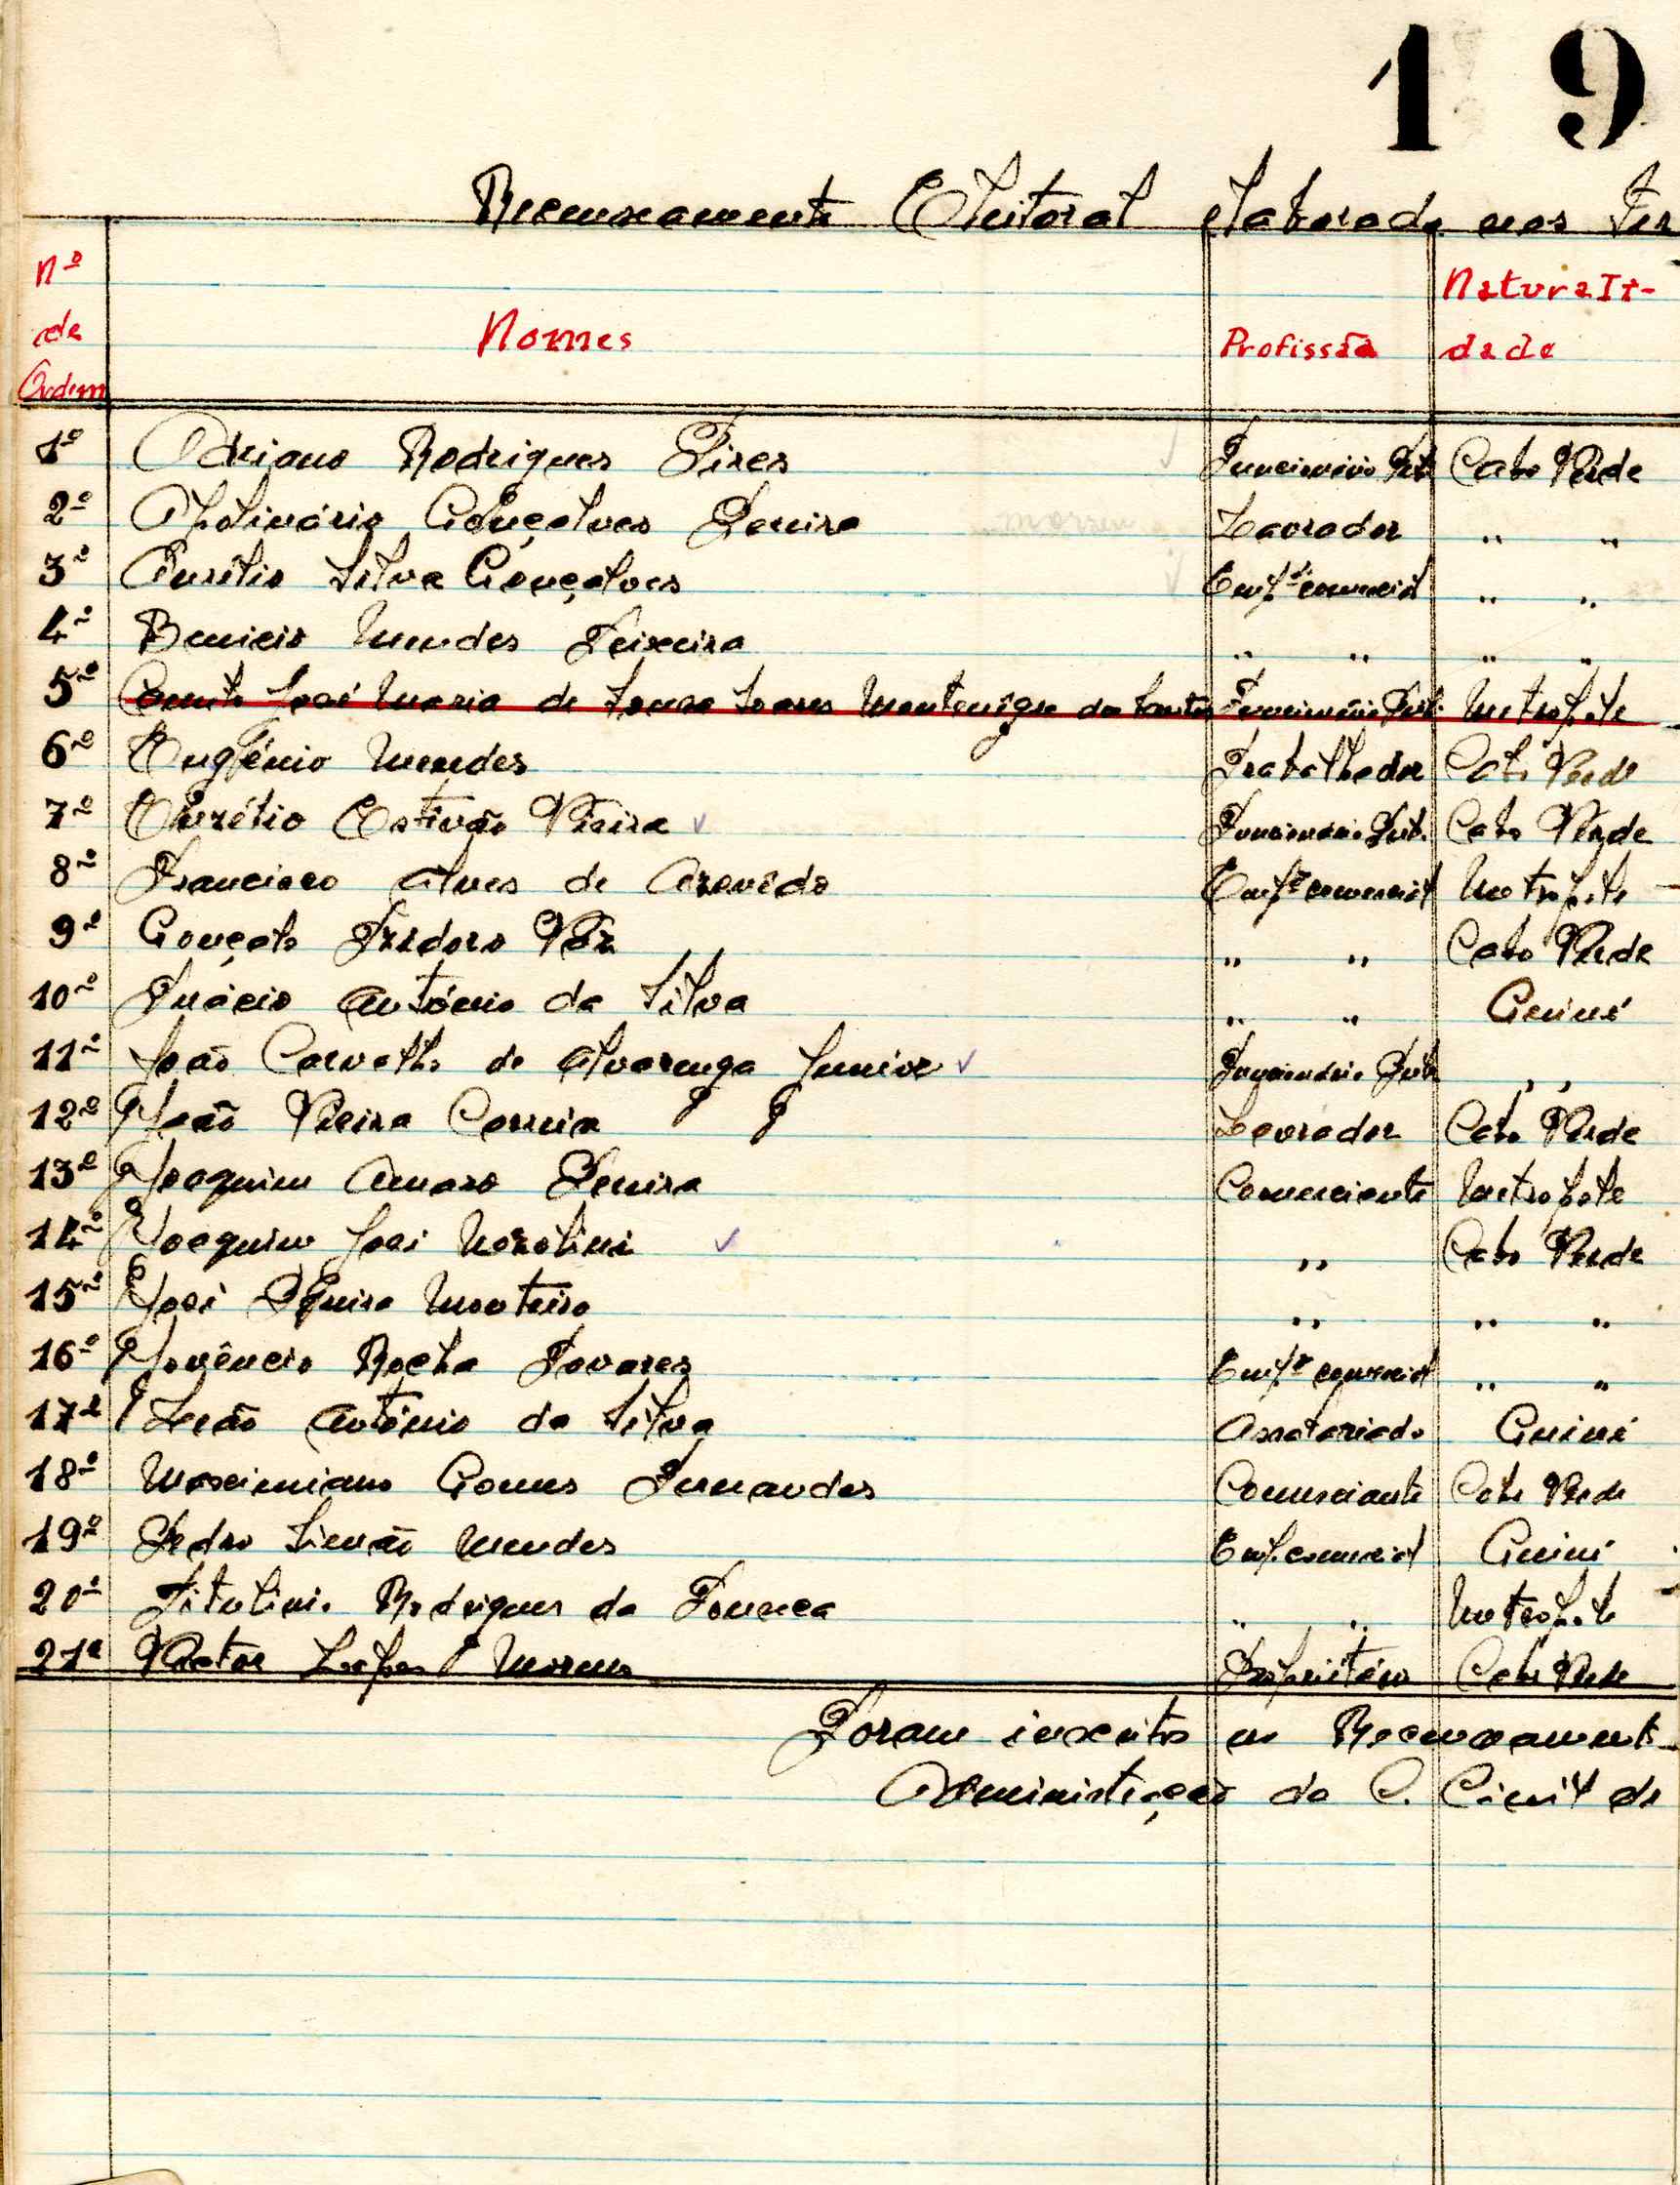 19
Recenseamento Eleitoral elaborado nos Ter
Nº de Ordem Nomes Profissão Naturalidade
1º Adriano Rodrigues Pires Funcionário Púb. Cabo Verde
2º Apolinário Gonçalves Pereira morreu Lavrador " "
3º Aurélio Silva Gonçalves Empº comercial " "
4º Benicio Mendes Teixeira " " " "
5º José Maria de Sousa Soares Montenegro dos Santos Funcionário Púb. Metropole
6º Eugénio Mendes Trabalhador Cabo Verde
7º Eurélio Estevão Vieira Funcionário Púb. Cabo Verde
8º Francisco Alves de Azevêdo Empº comercial Metropole
9º Gonçalo Izidoro Váz " " Cabo Verde
10º Inácio António da Silva " " Guiné
11º João Carvalho de Alvarenga Junior Funcionário Púb. " "
12º João Vieira Correia Lavrador Cabo Verde
13º Joaquim Amaro Pereira Comerciante Metropole
14º Joaquim José Nozolini " Cabo Verde
15º José Pereira Monteiro " " "
16º Jovêncio Rocha Tavares Empº comercial " "
17º Leão António da Silva Assalariado Guiné
18º Maximiano Gomes Fernandes Comerciante Cabo Verde
19º Pedro Simão Mendes Emp. comercial Guiné
20º Titolinio Rodrigues da Fonseca " " Metropole
21º Victor Lopes Moreno Proprietário Cabo Verde
Foram inscritos no Recenseamento
Administração do C. Civil de